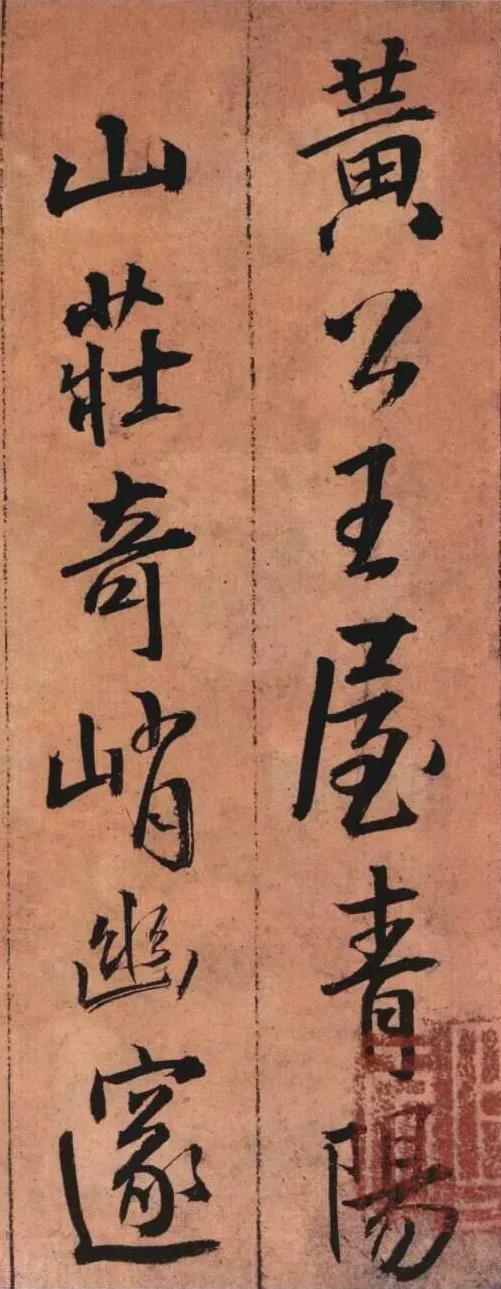 黃公王屋青陽
山莊奇峭幽邃